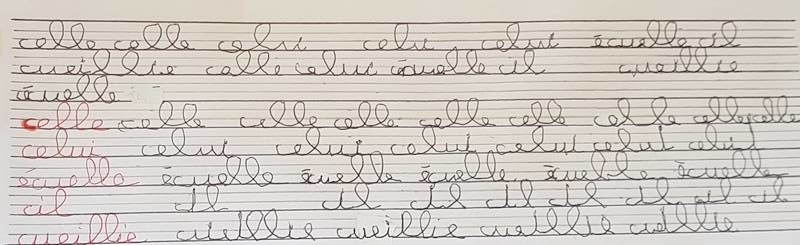 celle celle celui celui celui écuelle cil
cueillie celle celui écuelle cil cueillie
écuelle
celle celle celle celle celle celle celle celle celle
celui celui celui celui celui celui celui
écuelle écuelle écuelle écuelle écuelle écuelle
cil cil cil cil cil cil cil cil cil
cueillie cueillie cueillie cueillie cueillie